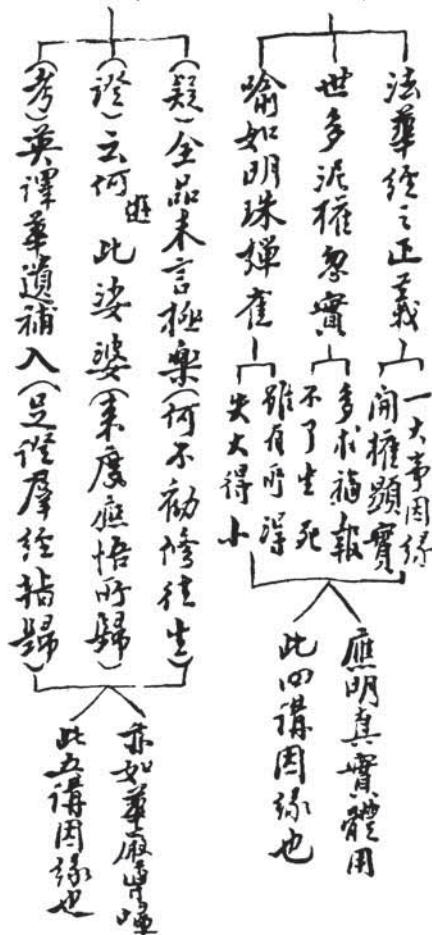 法華經之正義
一大事因緣
開權顯實
世多泥權忽實
多求福報
不了生死
喻如明珠彈雀
雖有所得
失大得小
應明真實體用
此四講因緣也
(疑)全品未言極樂(何不勸修往生)
(證)云何遊此娑婆(來度應悟所歸)
(考)英譯華遺補入(足徵羣經指歸)
亦如華嚴
此五講因緣也